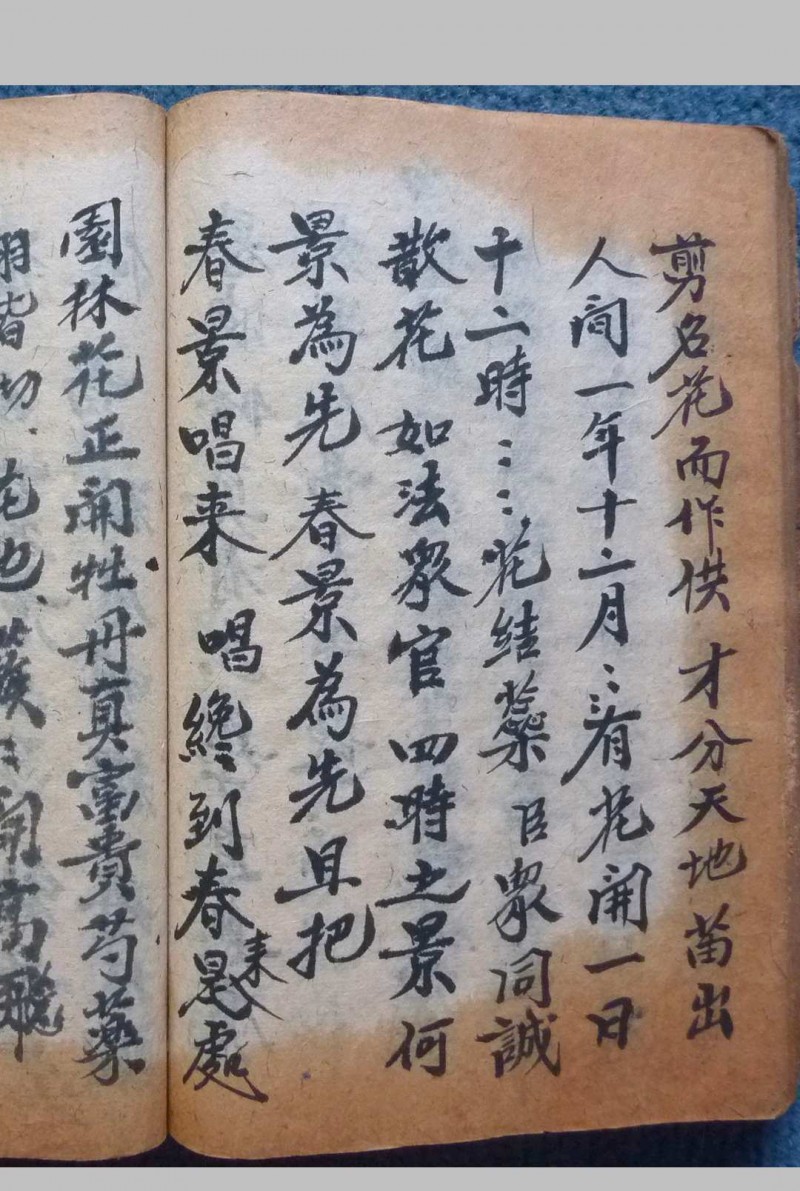 剪名花而作供 才分天地苗出
人間一年十二月〻〻有花開一日
十二時〻〻花結蘂 臣衆同誠
散花 如法衆官 四時之景何
景為先 春景為先且把
春景唱来 唱終到春来是處
園林花正開牡丹真富貴芍藥
花也 開高飛